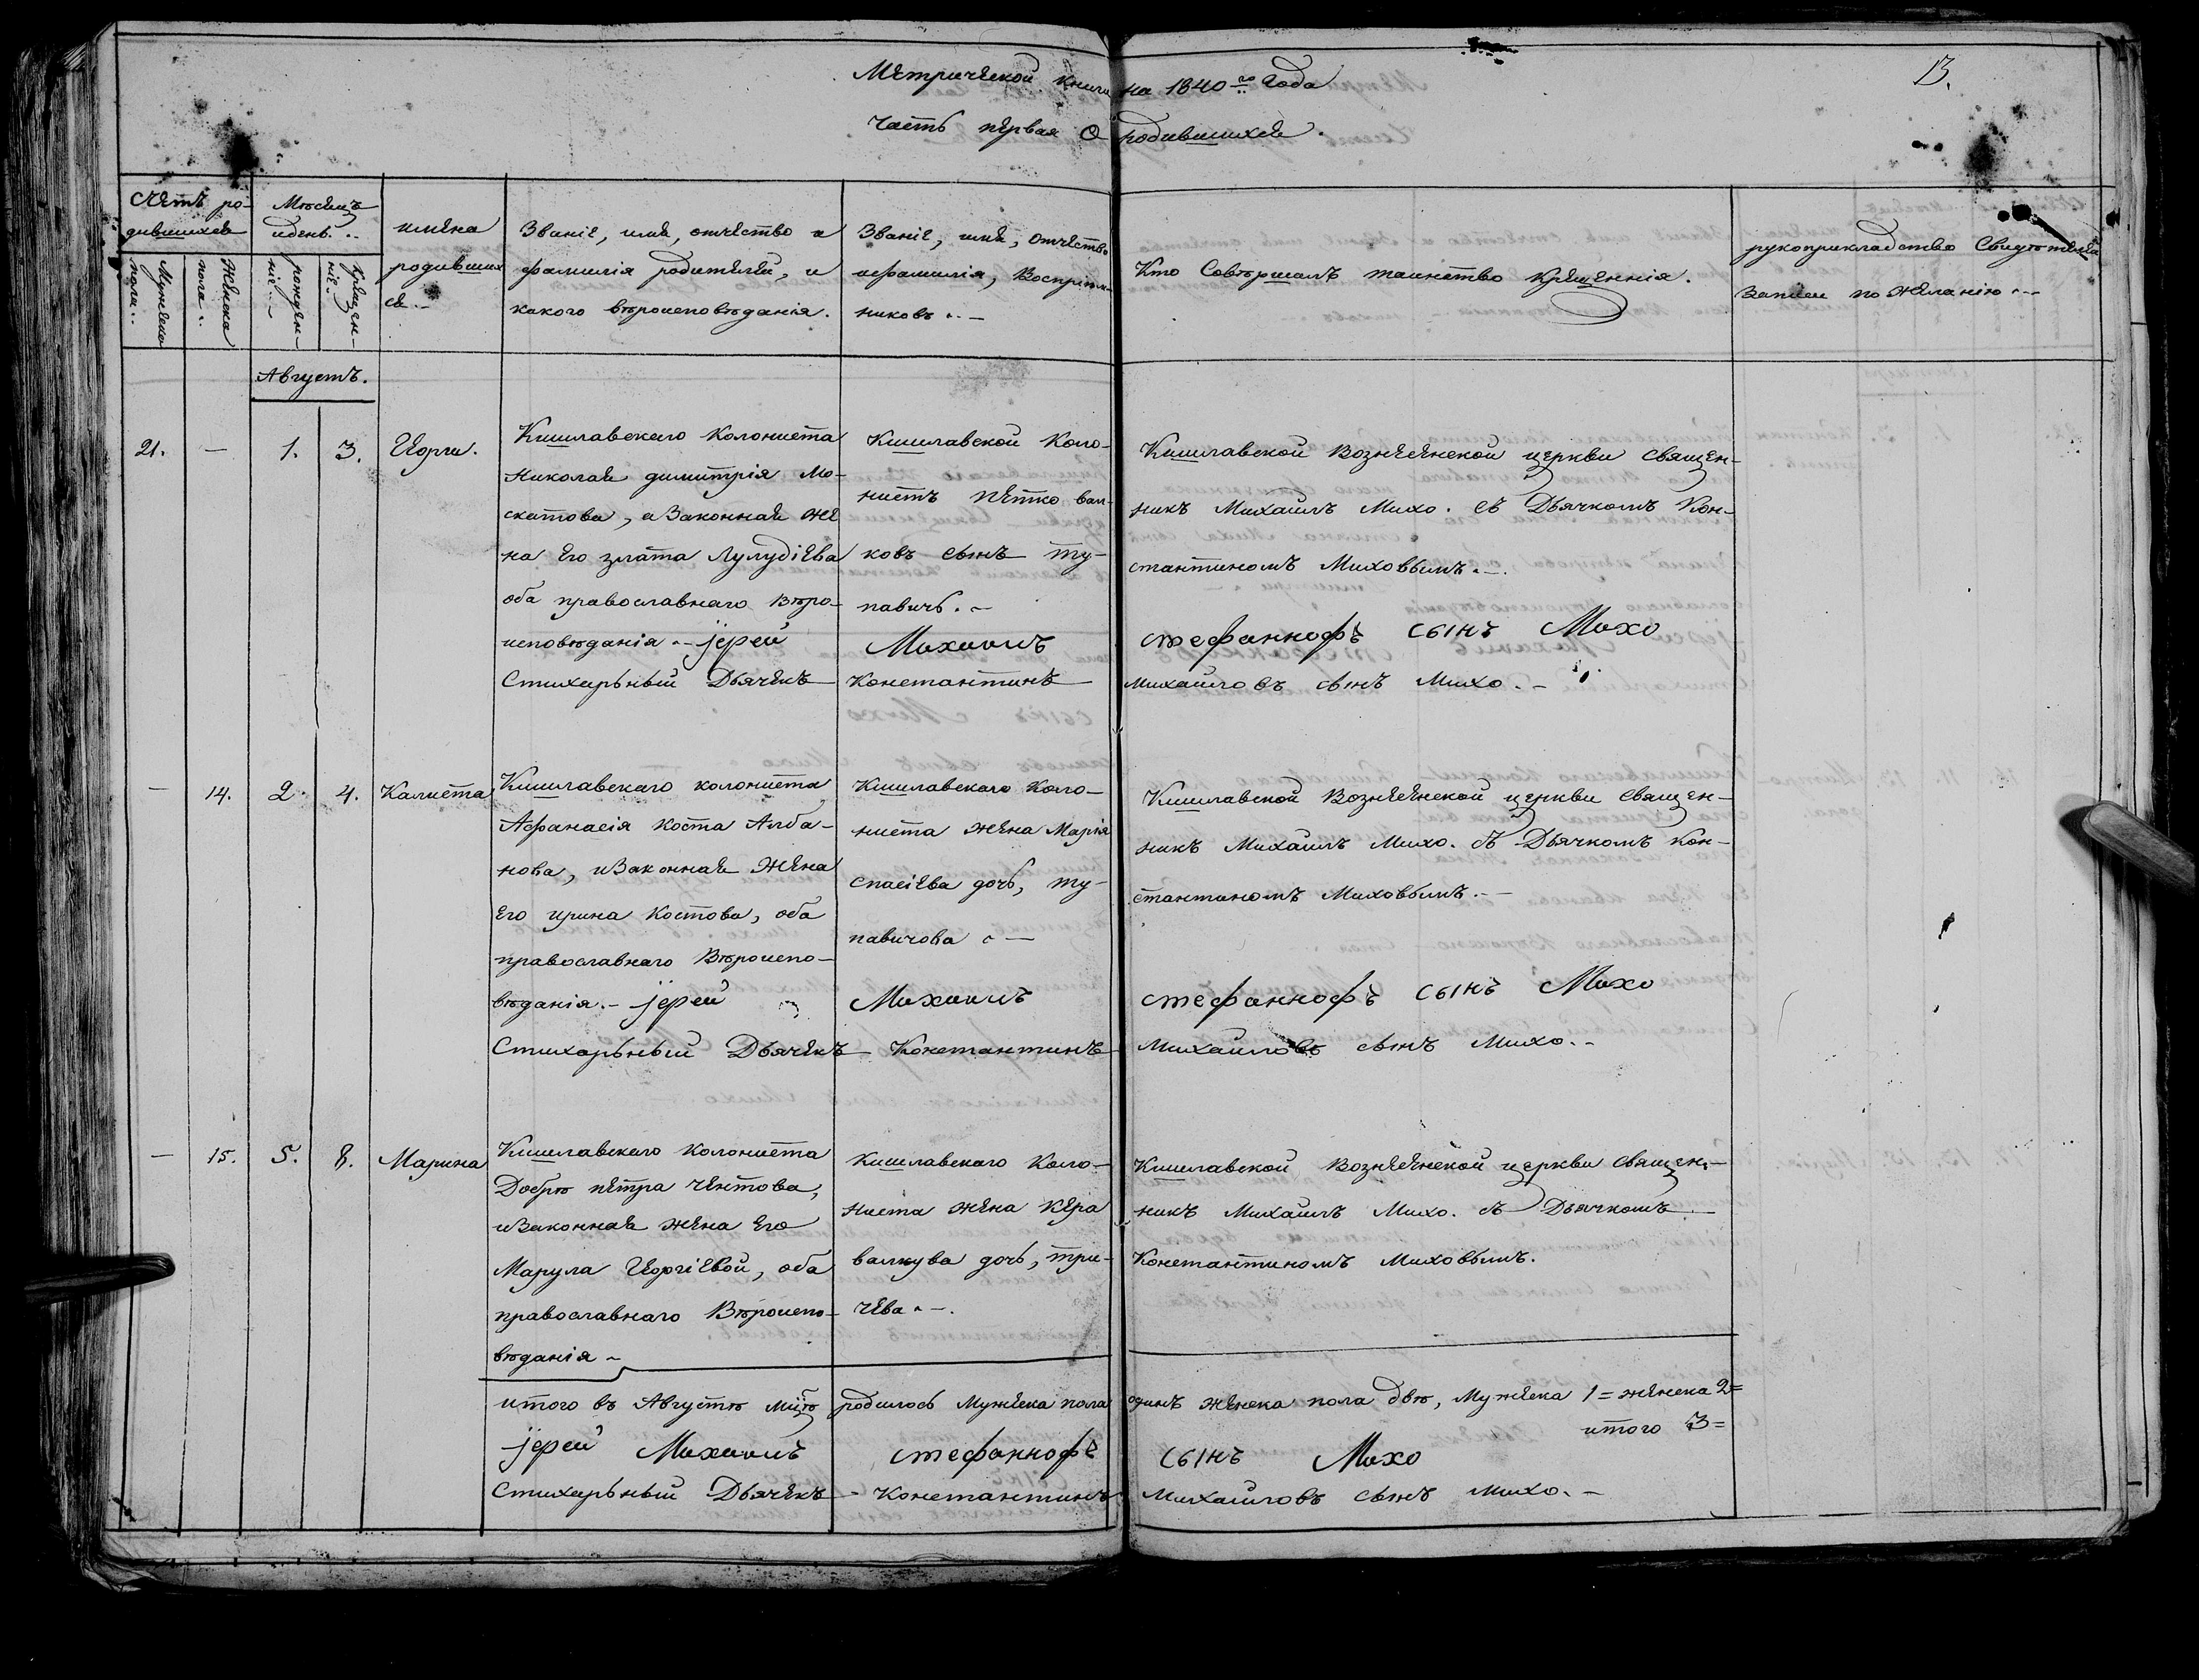 Метрической книги на 1840го Года
13.
Часть первая О родившихся.
Счетъ ро-
дившихся
Мужеска
пола..
Женска
пола..
Месяцъ
и день..
рожден-
ніе..
Крещен-
ніе.
имена
родивших
ся..
Званіе, имя, отчество и
фамилія родителей, и
какого вѣроисповѣданія.
Званіе, имя, Отчество
и фамилія, Воспріем-
никовъ..-
Кто Совѣршалъ таинство Крещеннія.
рукоприкладство Свидѣтелей
Записи по Желанію..-
Августъ.
21. - 1. 3. Георги.
Кишлавскаго Колониста
Николая димитрія Мо-
скатова, и Законная Же
на Его злата Лулудіева
оба православнаго Вѣро-
исповѣданія.- іерей
Стихарьный Дьячекъ
Кишлавской Коло-
нистъ Петко вал-
ковъ сынъ ту-
павичъ.-
Михаилъ
Константинъ
Кишлавской Вознесенской церкви Священ-
никъ Михаилъ Михо. съ Дьячкомъ Кон-
стантиномъ Миховымъ.-
стефаннофъ сынъ Михо
Михайловъ сынъ Михо.-
- 14. 2. 4. Калиста
Кишлавскаго колониста
Афанасія Коста Алба-
нова, и Законная Жена
Его ирина Костова, оба
православнаго Вѣроиспо-
вѣданія.- іерей
Стихарьный Дьячекъ
Кишлавскаго Коло-
ниста жена Марія
спасіева дочь, ту-
павичова.-
Михаилъ
Константинъ
Кишлавской Вознесенской церкви Священ-
никъ Михаилъ Михо. съ Дьячкомъ Кон-
стантиномъ Миховымъ.-
стефаннофъ сынъ Михо
Михайловъ сынъ Михо.-
- 15. 5. 8. Марина
Кишлавскаго Колониста
Добрѣ петра чентова,
и Законная жена Его
Марула Георгіевой, оба
православнаго Вѣроиспо-
вѣданія-
Кишлавскаго Коло-
ниста жена Кера
валкува дочь, три-
чева.-.
Кишлавской Вознесенской церкви Священ-
никъ Михаилъ Михо. съ Дьячкомъ
Константиномъ Миховымъ.
итого въ Августѣ мцѣ родилось Мужеска пола одинъ женска пола двѣ, Мужеска 1= женска 2=
итого 3=
іерей Михаилъ стефаннофъ сынъ Михо
Стихарьный Дьячекъ - Константинъ Михайловъ сынъ Михо.-